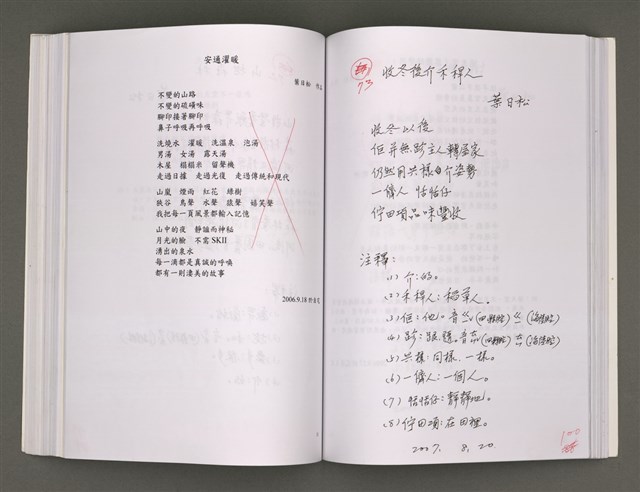 安通濯暖
葉日松 作品
不變的山路
不變的硫磺味
腳印接著腳印
鼻子呼吸再呼吸
洗燒水 濯暖 洗溫泉 泡湯
男湯 女湯 露天湯
木屋 榻榻米 留聲機
走過日據 走過光復 走過傳統和現代
山嵐 煙雨 紅花 綠樹
狹谷 鳥聲 水聲 嬉笑聲
我把每一頁風景都輸入記憶
山中的夜 靜謐而神秘
月光的臉 不需SKII
湧出的泉水
每一滴都是真誠的呼喚
都有一則淒美的故事
2006.9.18
73
收冬後介禾稈人
葉日松
收冬以後
佢并無跈主人轉屋家
仍然用共樣介姿勢
一儕人 恬恬仔
佇田項品味豐收
注釋:
(1) 介:的。
(2) 禾稈人:稻草人。
(3) 佢:他。音ㄍㄧ(四縣腔) (海陸腔)
(4) 跈:跟隨。音 (四縣腔) (海陸腔)
(5) 共樣:同樣、一樣。
(6) 一儕人:一個人。
(7) 恬恬仔:靜靜地。
(8) 佇田項:在田裡。
2007. 8. 20
100